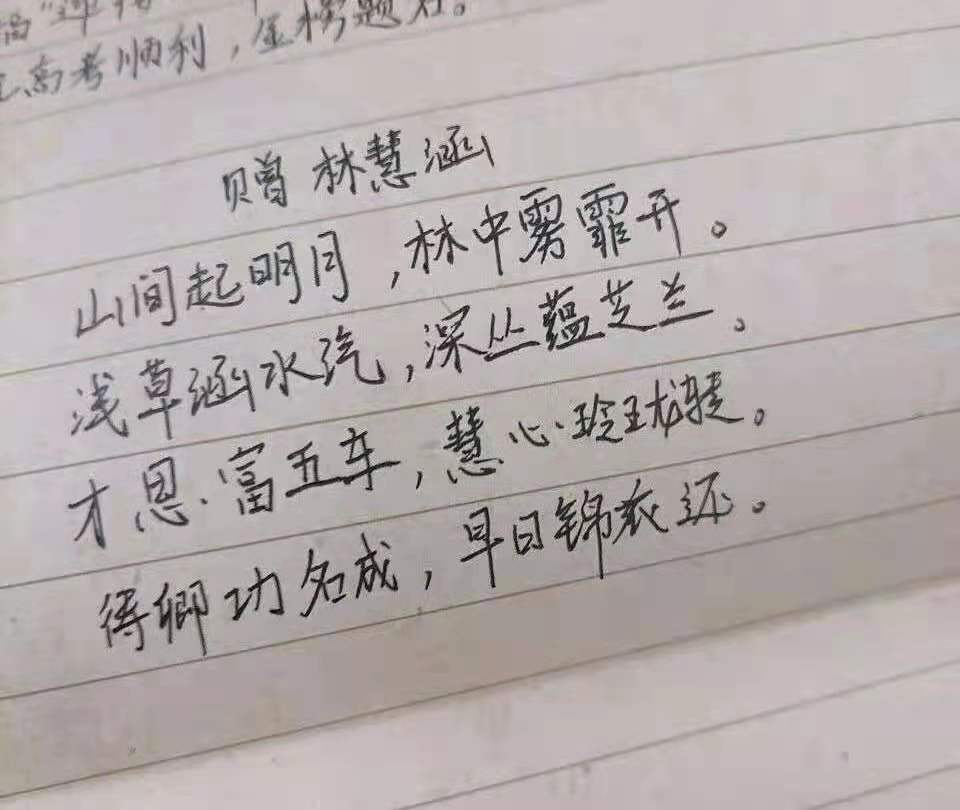 高考顺利，金榜题名。
赠林慧涵
山间起明月，林中雾霏开。
浅草涵水汽，深丛蕴芝兰。
才思富五车，慧心玲珑转。
得卿功名成，早日锦衣还。